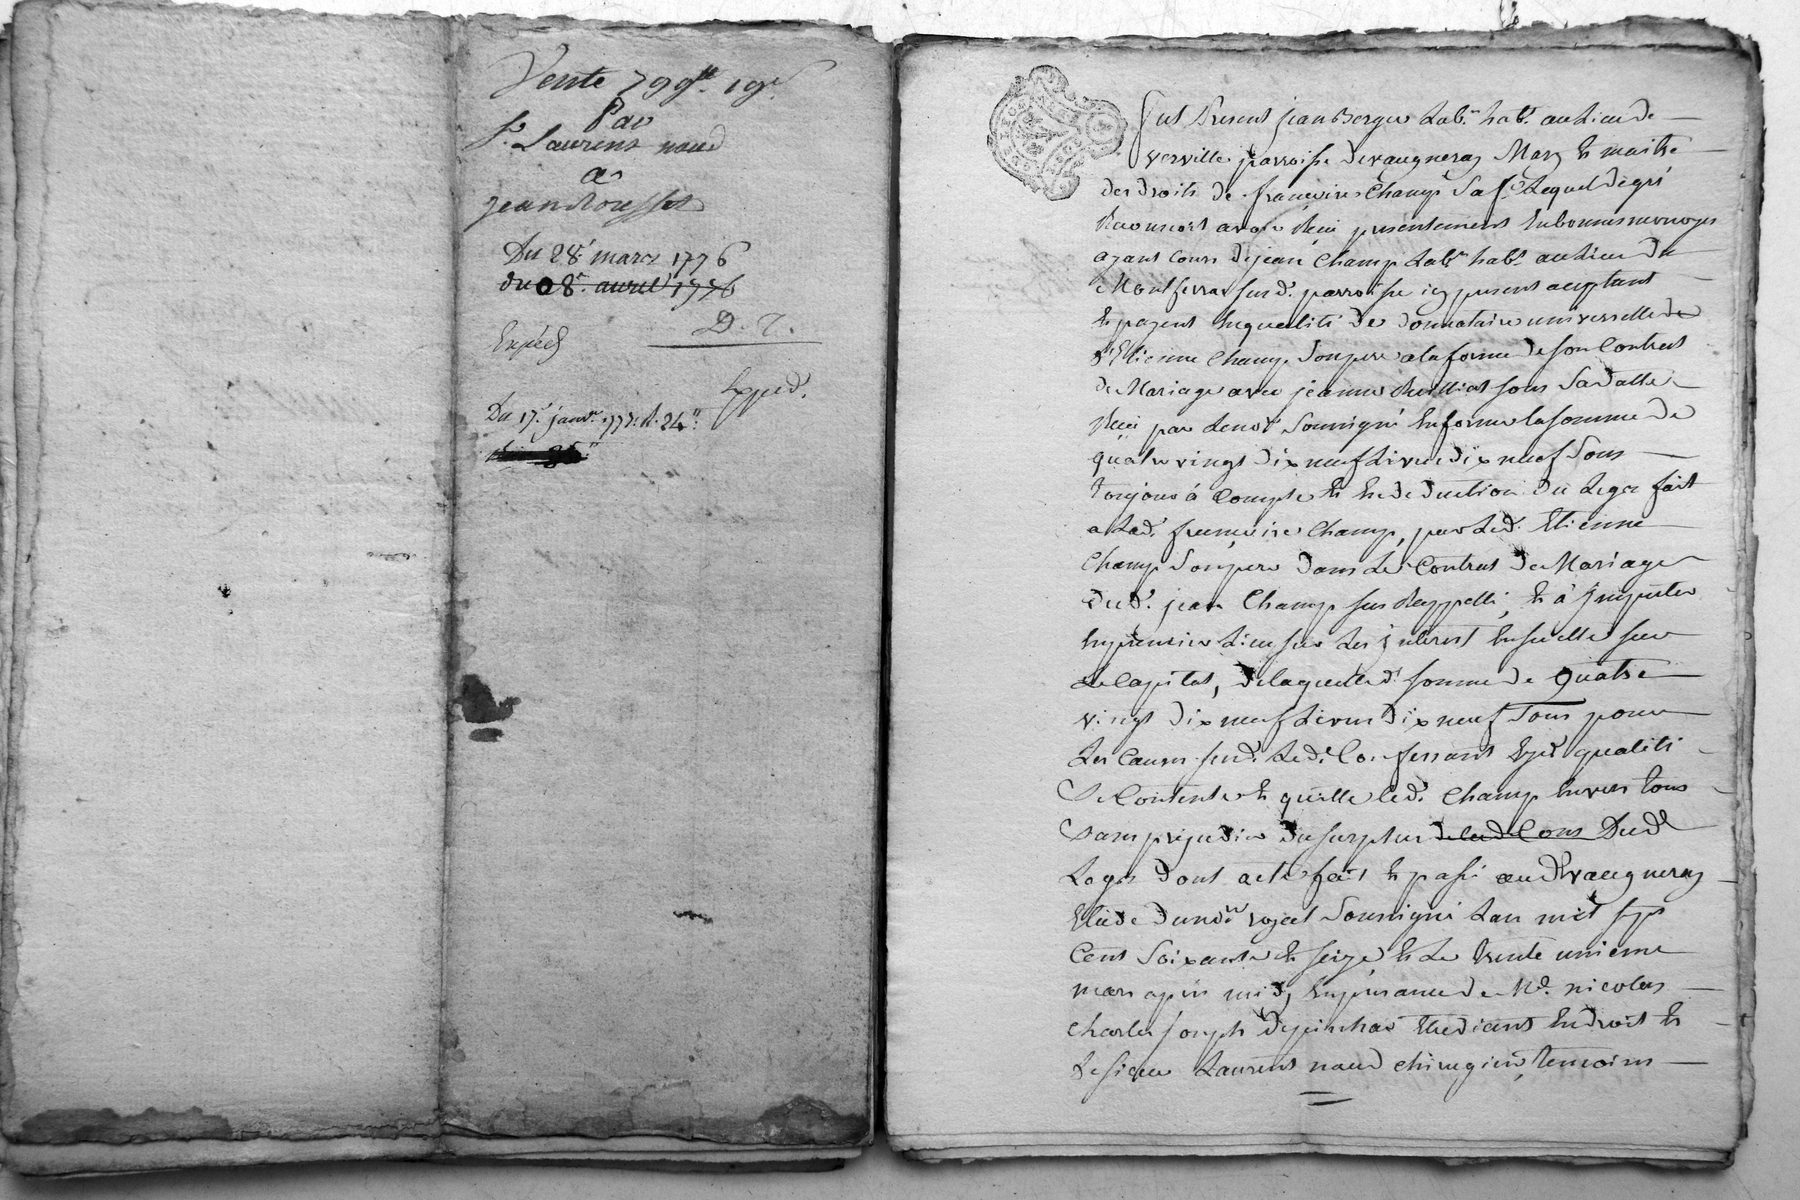 Vente 799# 19s.
Par
Sr. Laurens naud
a
jean
Du 28. mars 1776
du 08e. avril 1776
D. T.
Expéd
Expéd.
Du 17e. janvr. 1777. R. 24"
fut Present jean Berger Labr. habt. au Lieu de
verville parroisse de vaugneray Mary et maitre
des droits de françoise Champ sa fe. Lequel de gré
Reconnoit avoir Reçu presentement en bonnes monoyes
ayant Cours de jean Champ Labr. habt. au Lieu du
Montferra susd. parroisse icy present aceptant
et payant en qualité de donnataire universelle de
Sr. Etienne Champ son pere a la forme de son Contrat
de Mariage avec jeanne sous sa datte
Reçu par Le nore. Soussigné en forme la somme de
quatre vingt dix neuf Livres dix neuf sous
toujours à Compte et en deduction du Legs fait
a Lad. françoise Champ, par Led. Etienne
Champ son pere dans Le Contrat de Mariage
dud. jean Champ sus Rappellé, et à Imputer
en premier Lieu sur Les interest ensuitte sur
Le Capital, de laquelle d. somme de Quatre
vingt dix neuf Livres dix neuf sous pour
Les Causes susd. Led. Confessant esd. qualité
Se Contente et quitte led. Champ envers tous
Sans prejudice du surplus de lad Cons Dud
Legs dont acte fait et passé aud vaugneray
Etude du nore. royal Soussigné Lan mil sept
Cent Soixante et seize et Le trente unieme
mars après midy en presance de Me. nicolas
Charles joseph etudiant en droit et
Le sieur Laurens naud chirugien, temoins